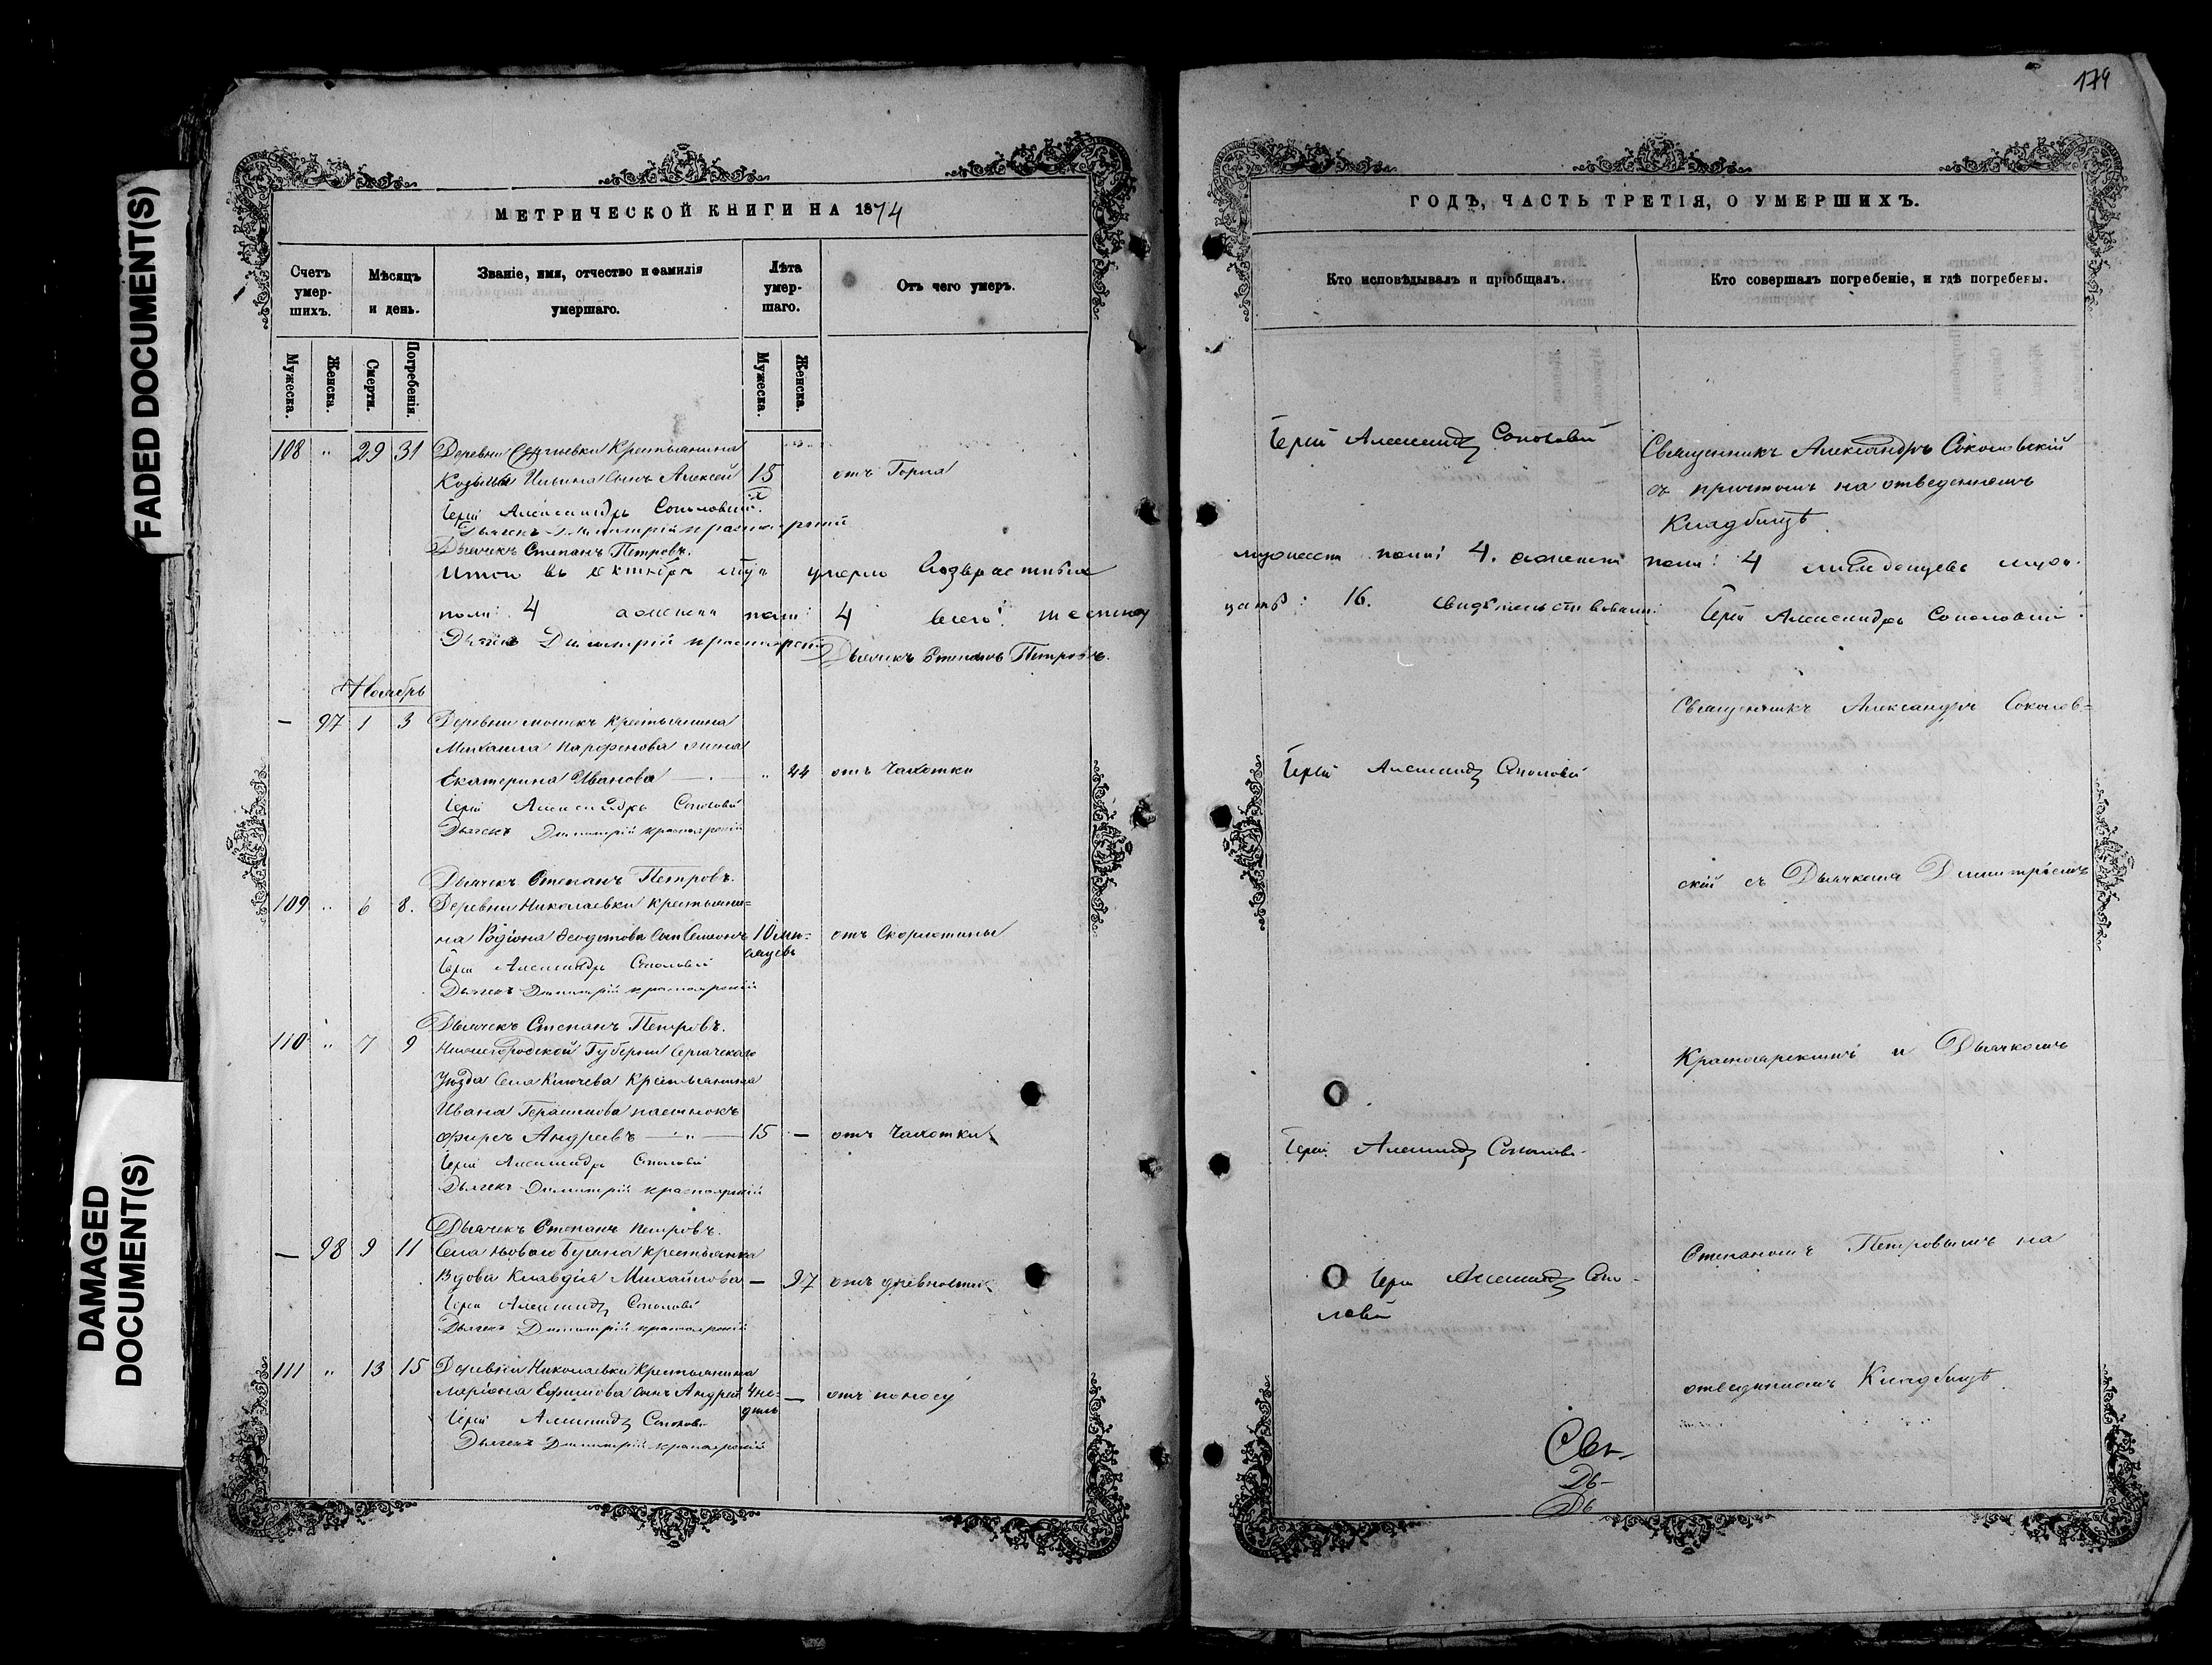 FADED DOCUMENT(S)
DAMAGED DOCUMENT(S)
МЕТРИЧЕСКОЙ КНИГИ НА 1874
Счетъ умер-шихъ.
Мѣсяцъ и день.
Званіе, имя, отчество и фамилія умершаго.
Лѣта умер-шаго.
Отъ чего умеръ.
Мужеска.
Женска.
Смерти.
Погребенія.
Мужеска.
Женска.
108 " 29 31 Деревни Сергіевки Крестьянина
Козьмы Ильина сынъ Алексей 15 отъ Горла
Іерей Александръ Соколовскій
Дьячекъ Димитрій Красноярскій
Дьячекъ Степанъ Петровъ.
Итого въ октябрѣ умерло
полъ: 4 женска полъ: 4 всего:
Димитрій Красноярскій
Дьячекъ Степанъ Петровъ.
Ноябрь
— 97 1 3 Деревни Крестьянина
Михаила Парфенова жена
Екатерина Иванова — " 44 отъ Чахотки
Іерей Александръ Соколовскій
Дьячекъ Димитрій Красноярскій
Дьячекъ Степанъ Петровъ.
109 " 6 8. Деревни Николаевки Крестьяни=
на Родіона Ѳеодотова сынъ Семеонъ 10 мѣ= отъ Скорлатины
сяцевъ
Іерей Александръ Соколовскій
Дьячекъ Димитрій Красноярскій
Дьячекъ Степанъ Петровъ.
110 " 7 9 Нижегородской Губерніи Сергачскаго
Уѣзда Села Ключева Крестьянина
Ивана Герасимова пасынокъ
Андреевъ — " — 15 — отъ Чахотки
Іерей Александръ Соколовскій
Дьячекъ Димитрій Красноярскій
Дьячекъ Степанъ Петровъ.
— 98 9 11 Села Новаго Буяна Крестьянка
Вдова Клавдія Михайлова — 97 отъ древности
Іерей Александръ Соколовскій
Дьячекъ Димитрій Красноярскій
111 " 13 15 Деревни Николаевки Крестьянина
Ларіона Ефимова сынъ Андрей 4 не= — отъ поносу
дель
Іерей Александръ Соколовскій
Дьячекъ Димитрій Красноярскій
174
ГОДѢ, ЧАСТЬ ТРЕТІЯ, О УМЕРШИХЪ.
Кто исповѣдывалъ и пріобщалъ.
Кто совершалъ погребеніе, и гдѣ погребены.
Іерей Александръ Соколовскій
Священникъ Александръ Соколовскій
съ причтомъ на отведенномъ
Кладбищѣ.
полъ: 4. женска полъ: 4 младенцевъ
16. свидѣтельствовали: Іерей Александръ Соколовскій
Священникъ Александръ Соколов=
Іерей Александръ Соколовскій
скій съ Дьячкомъ Димитріемъ
Красноярскимъ и Дьячкомъ
Іерей Александръ Соколовс
Степаномъ Петровымъ на
Іерей Александръ Соко-
ловскій
отведенномъ Кладбищѣ.
Свя-
Дь-
Дь